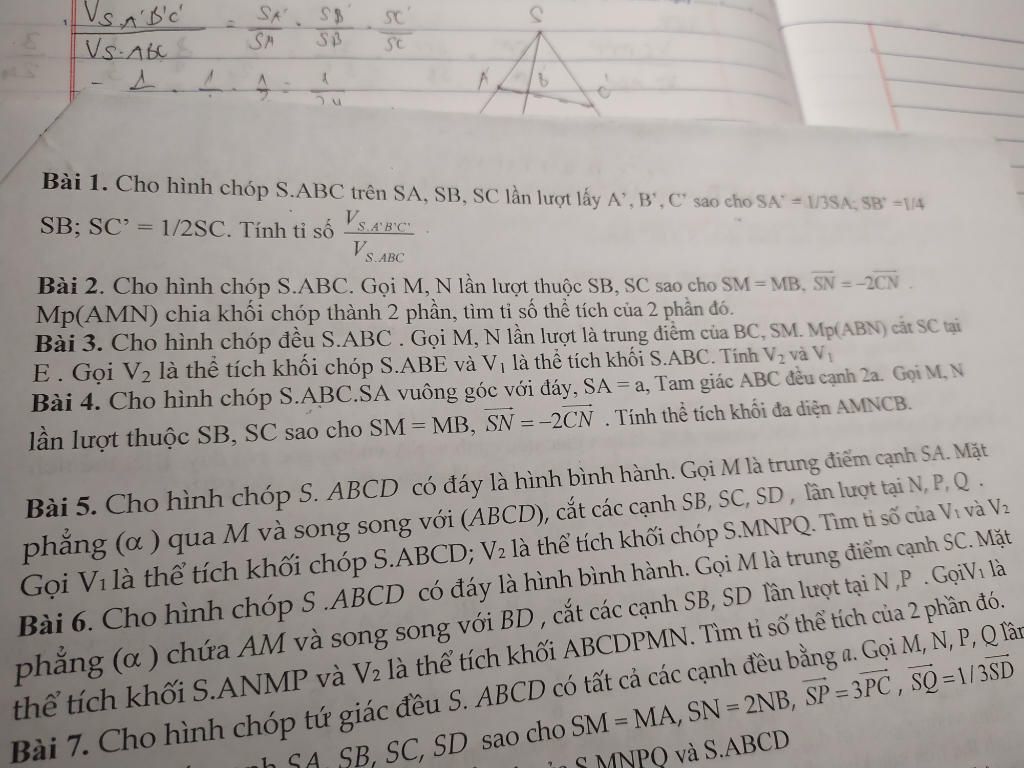 V S.A'B'C' / V S.ABC = SA'/SA . SB'/SB . SC'/SC
S
A' B' C'
Bài 1. Cho hình chóp S.ABC trên SA, SB, SC lần lượt lấy A', B', C' sao cho SA' = 1/3SA; SB' =1/4
SB; SC' = 1/2SC. Tính tỉ số V S.A'B'C' / V S.ABC
Bài 2. Cho hình chóp S.ABC. Gọi M, N lần lượt thuộc SB, SC sao cho SM = MB, SN = -2CN .
Mp(AMN) chia khối chóp thành 2 phần, tìm tỉ số thể tích của 2 phần đó.
Bài 3. Cho hình chóp đều S.ABC . Gọi M, N lần lượt là trung điểm của BC, SM. Mp(ABN) cắt SC tại
E . Gọi V2 là thể tích khối chóp S.ABE và V1 là thể tích khối S.ABC. Tính V2 và V1
Bài 4. Cho hình chóp S.ABC.SA vuông góc với đáy, SA = a, Tam giác ABC đều cạnh 2a. Gọi M, N
lần lượt thuộc SB, SC sao cho SM = MB, SN = -2CN . Tính thể tích khối đa diện AMNCB.
Bài 5. Cho hình chóp S. ABCD có đáy là hình bình hành. Gọi M là trung điểm cạnh SA. Mặt
phẳng (α ) qua M và song song với (ABCD), cắt các cạnh SB, SC, SD , lần lượt tại N, P, Q .
Gọi V1 là thể tích khối chóp S.ABCD; V2 là thể tích khối chóp S.MNPQ. Tìm tỉ số của V1 và V2
Bài 6. Cho hình chóp S .ABCD có đáy là hình bình hành. Gọi M là trung điểm cạnh SC. Mặt
phẳng (α ) chứa AM và song song với BD , cắt các cạnh SB, SD lần lượt tại N ,P . GọiV1 là
thể tích khối S.ANMP và V2 là thể tích khối ABCDPMN. Tìm tỉ số thể tích của 2 phần đó.
Bài 7. Cho hình chóp tứ giác đều S. ABCD có tất cả các cạnh đều bằng a. Gọi M, N, P, Q lần
SA, SB, SC, SD sao cho SM = MA, SN = 2NB, SP = 3PC , SQ = 1/3SD
S.MNPQ và S.ABCD